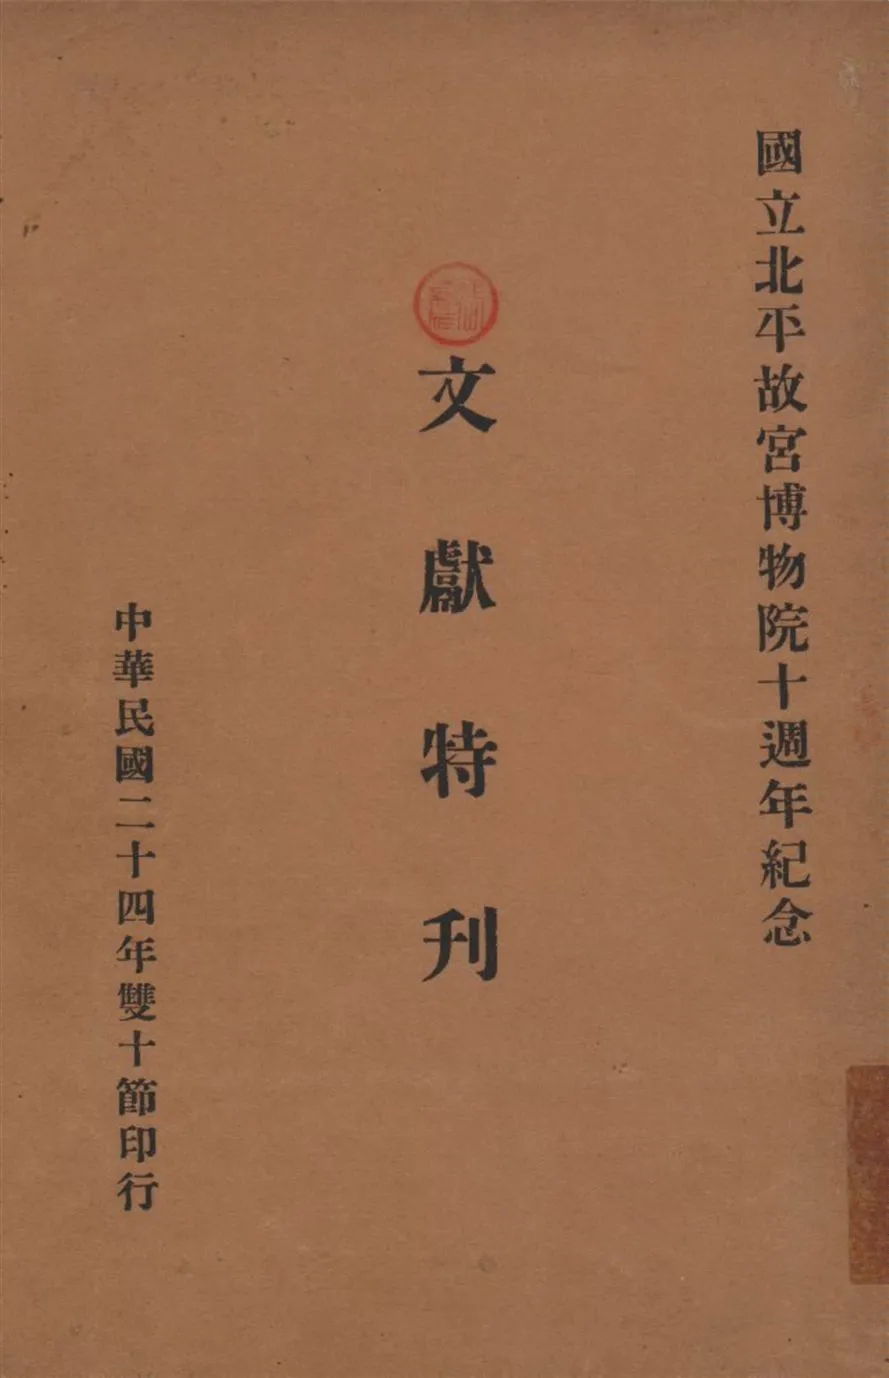 國立北平故宮博物院十週年紀念
文獻特刊
中華民國二十四年雙十節印行